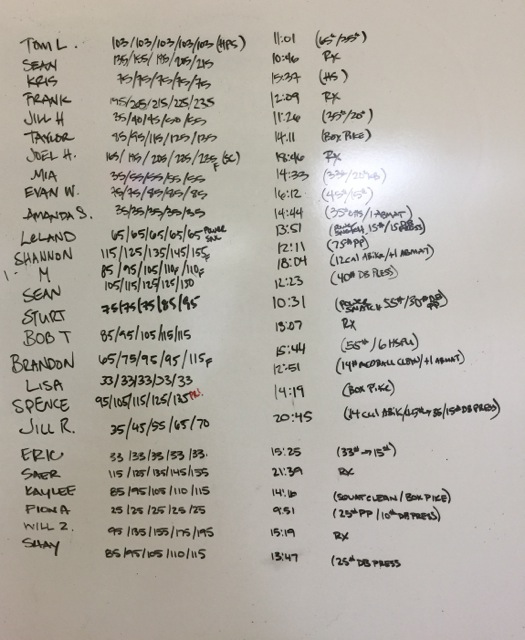 TOM L. 103/103/103/103/103 (HPS) 11:01 (65#/35#)
SEAN 135/155/195/205/215 10:46 RX
KRIS 75/75/75/75/75 15:37 (HS)
FRANK 195/205/215/225/235 12:09 RX
JILL H 35/40/45/50/55 11:26 (35#/20#)
TAYLOR 85/95/115/125/135 14:11 (BOX PIKE)
JOEL H. 165/195/205/225/225F (SC) 18:46 RX
MIA 35/55/55/55/55 14:33
EVAN W. 75/75/85/85/85 16:12 (45#/15#)
AMANDA S. 35/35/35/35/35 14:44 /1 ABMAT)
LELAND 65/65/65/65/65 POWER SNC 13:51
SHANNON 115/125/135/145/155F 12:11 (75# PP)
M 85/95/105/110F/110F 18:04 (12 CAL ABIKE/+1 ABMAT)
SEAN 105/115/125/125/130 12:23 (40# DB PRESS)
STURT 75/75/75/85/95 10:31 (POWER SNATCH 55#/30# DB PP)
BOB T 85/95/105/115/115 13:07 RX
BRANDON 65/75/95/95/115F 15:44 (55#/6 HSPU)
LISA 33/33/33/33/33 12:51 (14# MEDBALL CLEAN/+1 ABMAT)
SPENCE 95/105/115/125/135 PR! 14:19 (BOX PIKE)
JILL R. 35/45/55/65/70 20:45 (14 CAL ABIKE/25#→35/15# DB PRESS)
ERIC 33/33/33/33/33. 15:25 (33#→15#)
SAER 115/125/135/145/155 21:39 RX
KAYLEE 85/95/105/110/115 14:16 (SQUAT CLEAN/BOX PIKE)
FIONA 25/25/25/25/25 9:51 (25# PP/10# DB PRESS)
WILL Z. 95/135/155/175/195 15:19 RX
SHAY 85/95/105/110/115 13:47 (25# DB PRESS